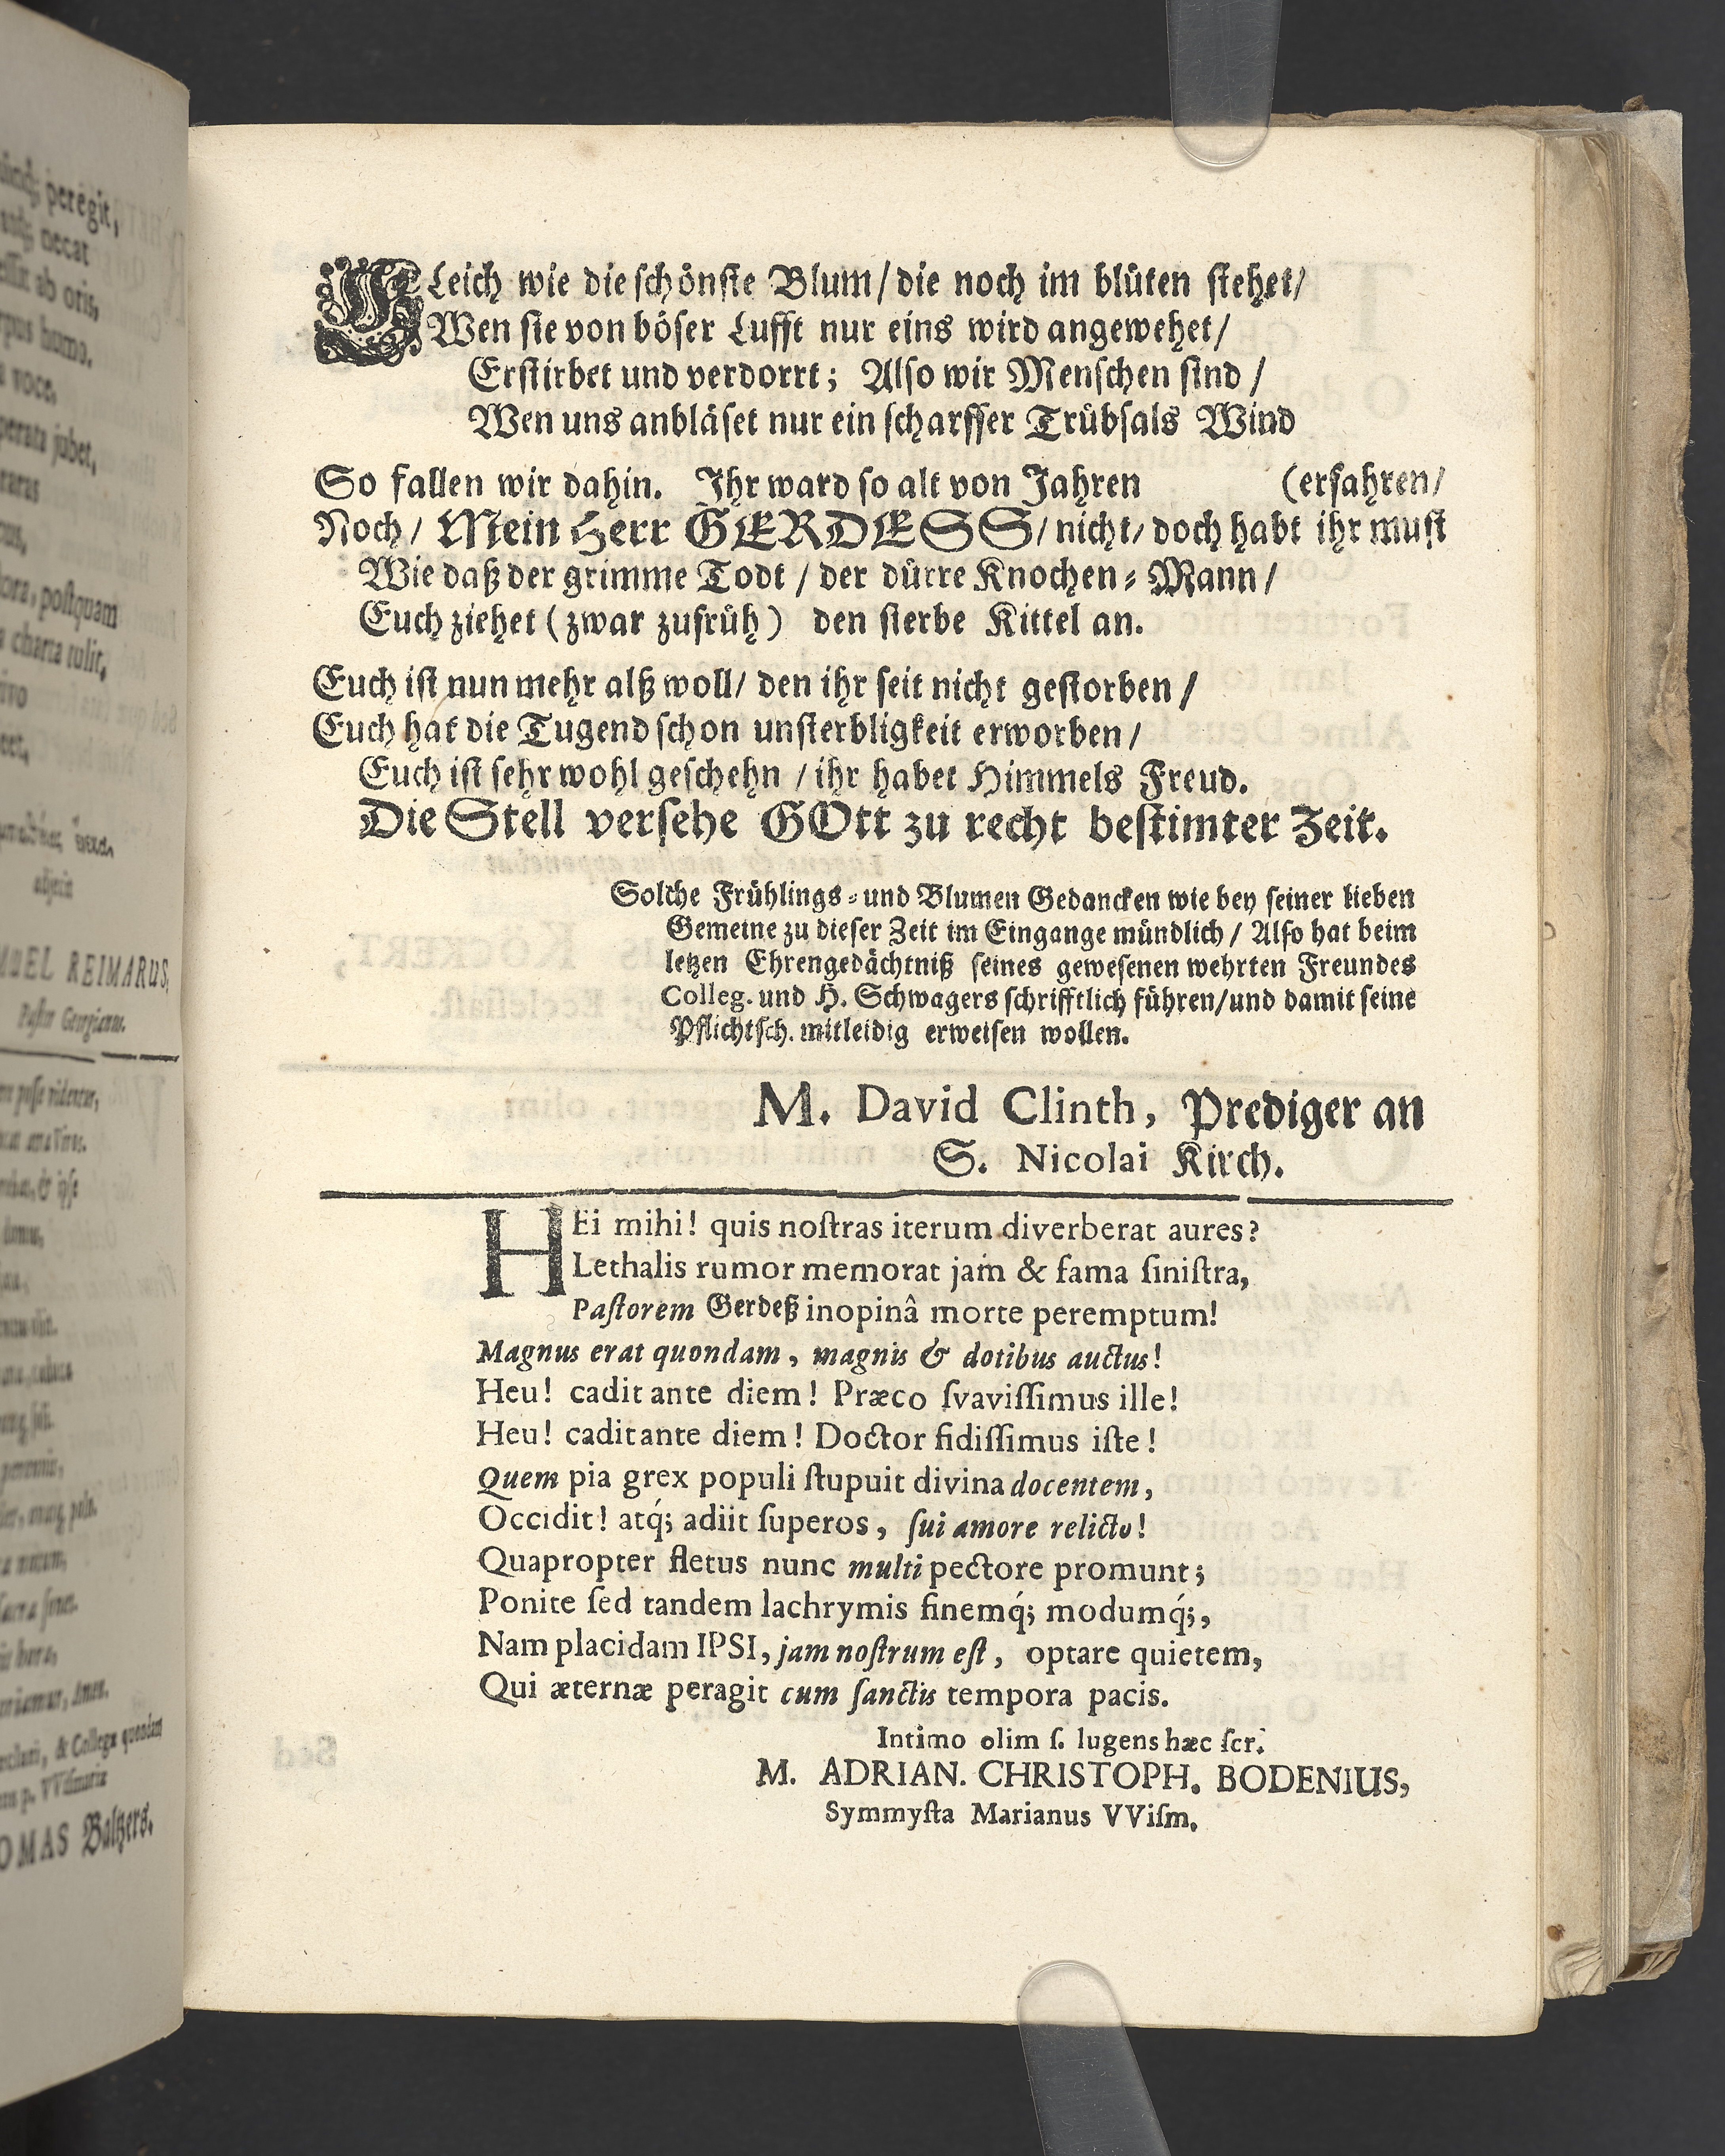 peregit,
necat
ab oris,
homo.
voce,
jubet,
postquam
charta tulit,
REIMARUS,
Pastor Georgianus.
& Collegæ quondam
Baltzers.
GLeich wie die schönste Blum/ die noch im blüten stehet/
Wen sie von böser Lufft nur eins wird angewehet/
Erstirbet und verdorrt; Also wir Menschen sind /
Wen uns anbläset nur ein scharffer Trübsals Wind
So fallen wir dahin. Ihr ward so alt von Jahren (erfahren/
Noch/ Mein Herr GERDESS/ nicht/ doch habt ihr must
Wie daß der grimme Todt / der dürre Knochen-Mann /
Euch ziehet (zwar zufrüh) den sterbe Kittel an.
Euch ist nun mehr alß woll/ den ihr seit nicht gestorben /
Euch hat die Tugend schon unsterbligkeit erworben /
Euch ist sehr wohl geschehn / ihr habet Himmels Freud.
Die Stell versehe GOtt zu recht bestimter Zeit.
Solche Frühlings- und Blumen Gedancken wie bey seiner lieben
Gemeine zu dieser Zeit im Eingange mündlich / Also hat beim
letzen Ehrengedächtniß seines gewesenen wehrten Freundes
Colleg. und H. Schwagers schrifftlich führen/und damit seine
Pflichtsch. mitleidig erweisen wollen.
M. David Clinth, Prediger an
S. Nicolai Kirch.
HEi mihi! quis noſtras iterum diverberat aures?
Lethalis rumor memorat jam & fama ſiniſtra,
Paſtorem Gerdeß inopinâ morte peremptum!
Magnus erat quondam, magnis & dotibus auctus!
Heu! cadit ante diem! Præco ſvaviſſimus ille!
Heu! cadit ante diem! Doctor fidiſſimus iſte!
Quem pia grex populi ſtupuit divina docentem,
Occidit! atq́; adiit ſuperos, ſui amore relicto!
Quapropter fletus nunc multi pectore promunt;
Ponite ſed tandem lachrymis finemq́; modumq́;,
Nam placidam IPSI, jam noſtrum eſt, optare quietem,
Qui æternæ peragit cum ſanctis tempora pacis.
Intimo olim ſ. lugens hæc ſcr.
M. ADRIAN. CHRISTOPH. BODENIUS,
Symmyſta Marianus VViſm.